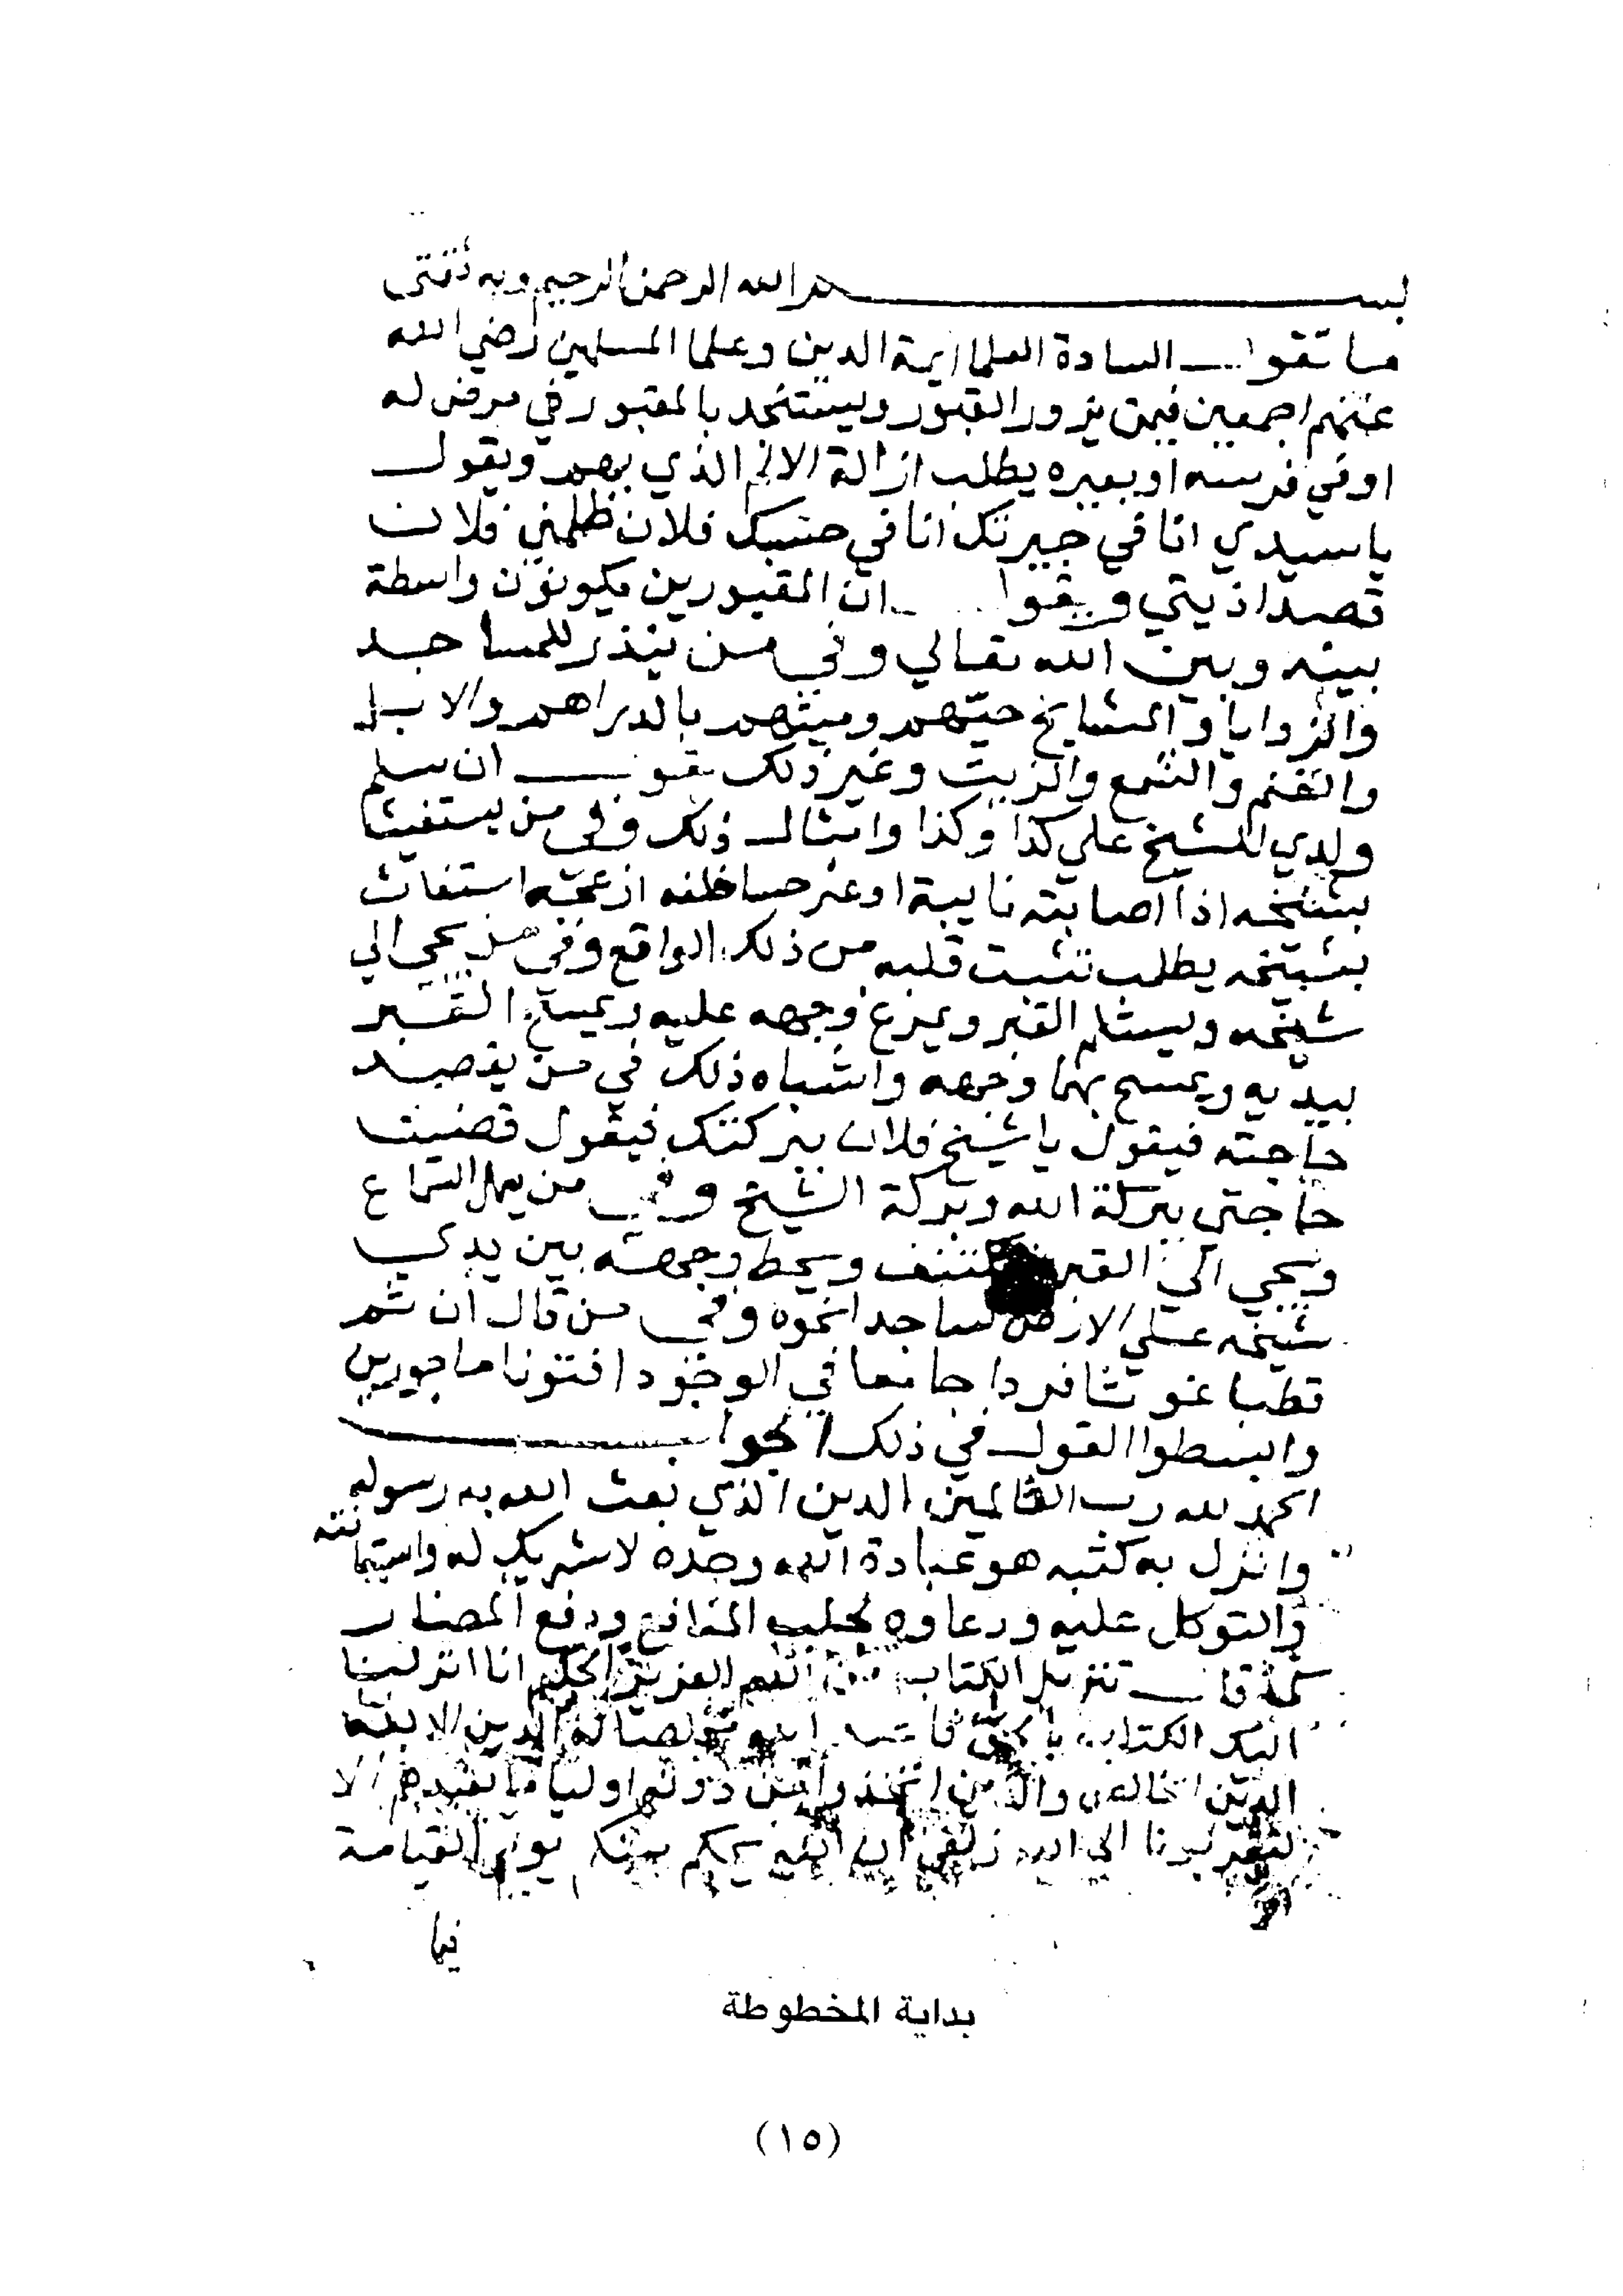 بسم الله الرحمن الرحيم وبه ثقتى
ما تقول السادة العلما ايمة الدين وعلما المسلمين رضي الله
عنهم اجمعين فيمن يزور القبور ويستنجد بالمقبور في مرض له
او في فرسه او بعيره يطلب ازالة الالم الذي بهم ويقول
يا سيدي انا في جيرتك انا في حسبك فلان ظلمني فلان
قصد اذيتي ويقول ان المقبورين يكونون واسطة
بينه وبين الله تعالي وفي من ينذر للمساجد
والزوايا والمشايخ حيّهم وميتهم بالدراهم والابل
والغنم والشمع والزيت وغير ذلك يقول ان سلم
ولدي للشيخ علي كذا وكذا وامثال ذلك وفي من يستغيث
بشيخه اذا اصابته نايبة او غير حسا خلفه ازعجه استغاث
بشيخه يطلب تثبت قلبه من ذلك الواقع وفي من يجي الي
شيخه ويستلم القبر ويمرغ وجهه عليه ويمسح القبر
بيديه ويمسح بهما وجهه واشباه ذلك في من يقصد
حاجته فيقول يا شيخ فلان ببركتك فيقول قضيت
حاجتي ببركة الله وبركة الشيخ وفي من يعمل السماع
ويجي الي القبر ويحط وجهه بين يدي
شيخه علي الارض ساجدا نحوه وفي من قال ان ثم
قطبا غوثا فردا جامعا في الوجود افتونا ماجورين
وابسطوا القول في ذلك الجواب
الحمد لله رب العالمين الدين الذي بعث الله به رسوله
وانزل به كتبه هو عبادة الله وحده لا شريك له واستعانته
والتوكل عليه ودعاوه لجلب المنافع ودفع المضار
كما قال تنزيل الكتاب من الله العزيز الحكيم انا انزلنا
اليك الكتاب بالحق فاعبد الله مخلصا له الدين الا لله
الدين الخالص والذين اتخذوا من دونه اوليا ما نعبدهم الا
ليقربونا الي الله زلفي ان الله يحكم بينكم يوم القيامة
فيما
بداية المخطوطة
(١٥)